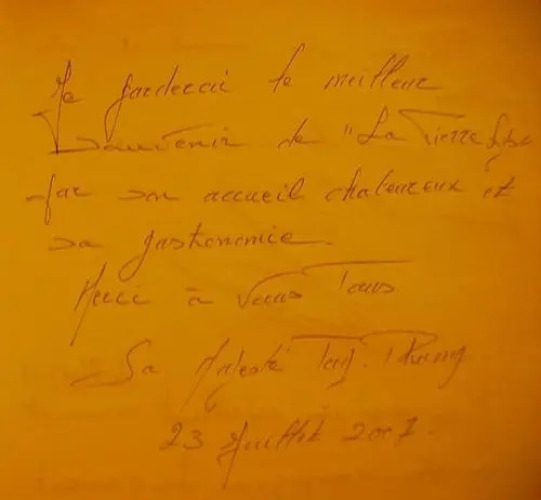 Je garderai le meilleur
souvenir de "La Pierre
par son accueil chaleureux et
sa gastronomie.
Merci à vous tous
Sa Majesté
23 Juillet 2007.